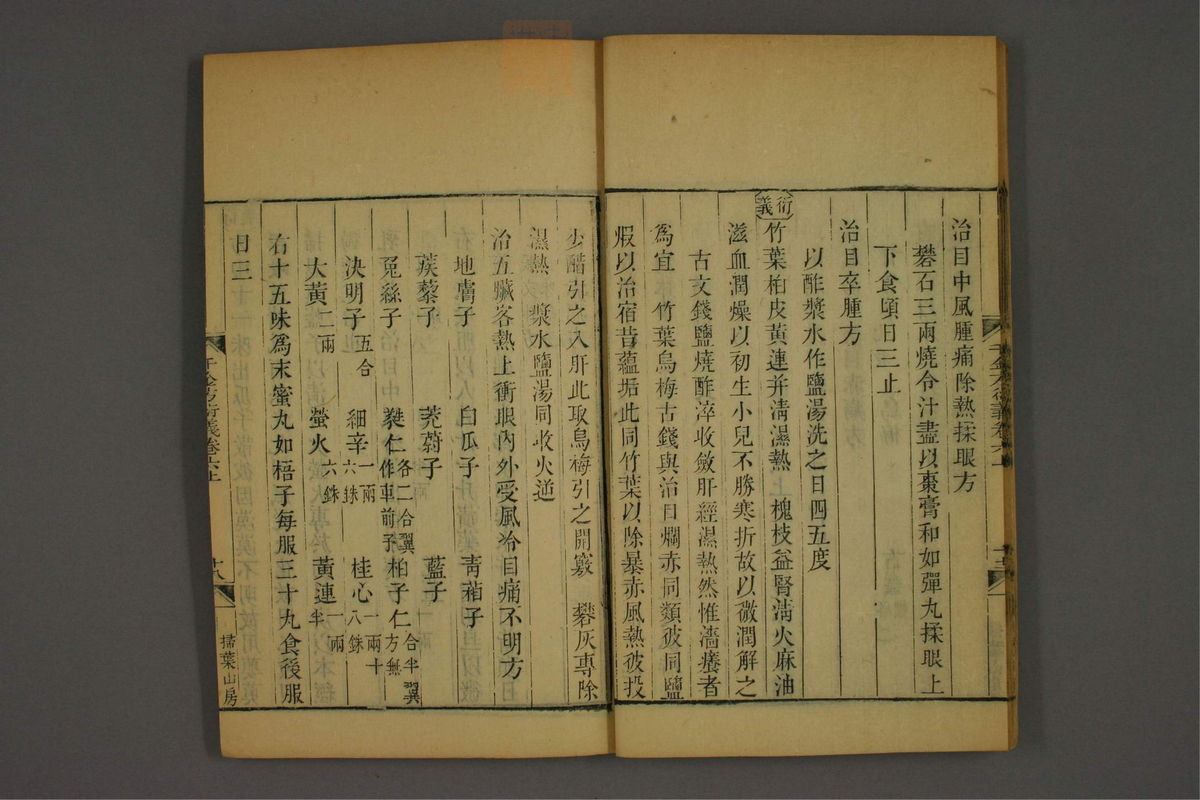 治目中風腫痛除熱揉眼方
礬石三兩燒令汁盡以棗膏和如彈丸揉眼上
下食頃日三止
治目卒腫方
以酢漿水作鹽湯洗之日四五度
衍義
竹葉柏皮黃連并淸濕熱 槐枝益腎淸火麻油
滋血潤燥以初生小兒不勝寒折故以微潤解之
古文錢鹽燒酢淬收斂肝經濕熱然惟濇癢者
爲宜 竹葉烏梅古錢與治目爛赤同類彼同鹽
煅以治宿昔蘊垢此同竹葉以除暴赤風熱彼投
少醋引之入肝此取烏梅引之開竅 礬灰專除
濕熱 漿水鹽湯同收火逆
治五臟客熱上衝眼內外受風冷目痛不明方
地膚子 白瓜子 靑葙子
蒺藜子 茺蔚子 藍子
菟絲子 蕤仁各二合翼作車前子 柏子仁一兩十合半翼方無
決明子五合 細辛一兩六銖 桂心一兩八銖
大黃二兩 螢火六銖 黃連一兩半
右十五味爲末蜜丸如梧子每服三十丸食後服
日三
千金方衍義卷六上 十八
掃葉山房